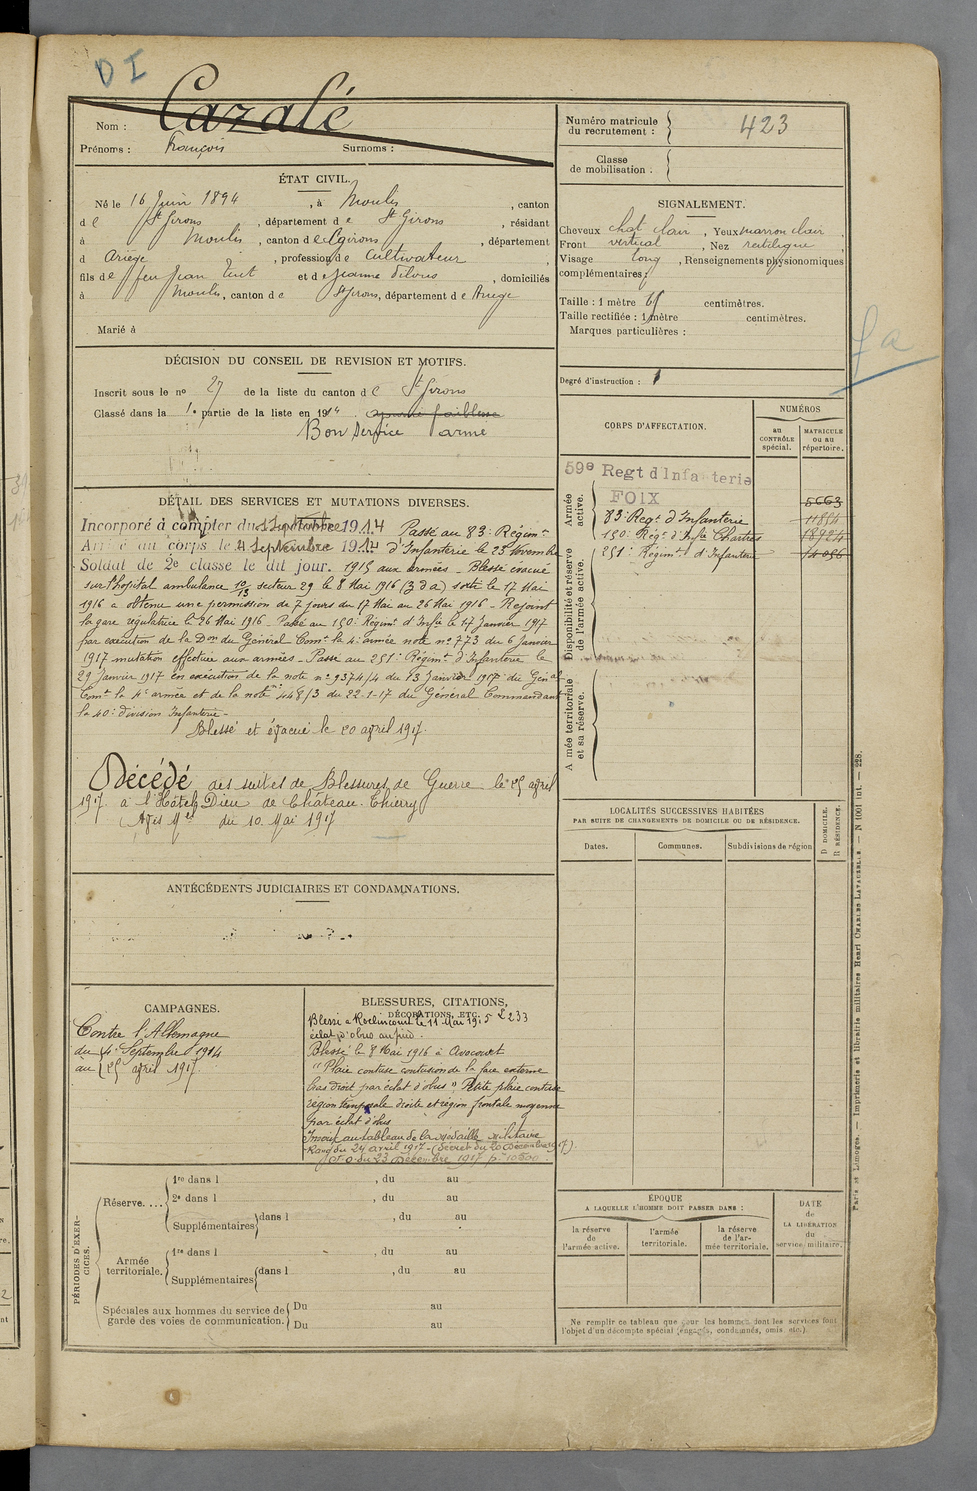 DI
Nom : Cazalé
Prénoms : François Surnoms :
ÉTAT CIVIL.
Né le 16 Juin 1894, à Moulis, canton
de St Girons, département de St Girons, résidant
à Moulis, canton de St girons, département
d Ariège, profession de Cultivateur,
fils de feu Jean et de Jeanne, domiciliés
à Moulis, canton de St Girons, département de Ariège
Marié à
DÉCISION DU CONSEIL DE REVISION ET MOTIFS.
Inscrit sous le no 27 de la liste du canton de St Girons
Classé dans la 1e partie de la liste en 1914. ajourné faiblesse
Bon service armé
DÉTAIL DES SERVICES ET MUTATIONS DIVERSES.
Incorporé à compter du Septembre 1914 Passé au 83e Régimt
Arrivé au corps le 4 Septembre 1914 d'Infanterie le 25 Novembre
Soldat de 2e classe le dit jour. 1915 aux armées - Blessé évacué
sur l'hopital ambulance 10/13 secteur 29 le 8 Mai 1916 (3 d a) sorti le 17 Mai
1916 a obtenu une permission de 7 jours du 17 Mai au 26 Mai 1916 - Rejoint
la gare régulatrice le 26 Mai 1916 - Passé au 150e Régimt d'Infie le 17 Janvier 1917
par exécution de la Don du Général Comt la 4e armée note no 773 du 6 Janvier
1917 mutation effectuée aux armées - Passé au 251e Régimt d'Infanterie le
29 Janvier 1917 en exécution de la note no 9374/4 du 13 Janvier 1917 du Génal
Comt la 4e armée et de la note 448/3 du 22-1-17 du Général Commandant
la 40e division Infanterie -
Blessé et évacué le 20 avril 1917.
Décédé des suites de Blessures de Guerre le 25 avril
1917 à l'Hôtel Dieu de Château-Thierry
(Avis Mel du 10 Mai 1917
ANTÉCÉDENTS JUDICIAIRES ET CONDAMNATIONS.
CAMPAGNES.
Contre l'Allemagne
du 4 Septembre 1914
au 25 avril 1917.
BLESSURES, CITATIONS,
DÉCORATIONS, ETC.
Blessé a Roclincourt le 11 Mai 1915 L 233
éclat d'obus au pied.
Blessé le 8 Mai 1916 à Avocourt
"Plaie contuse contusion de la face externe
bras droit par éclat d'obus". Petite plaie contuse
région temporale droite et région frontale moyenne
par éclat d'obus
Inscrit au tableau de la Médaille Militaire
Rang du 24 avril 1917 - (décret du 20 Décembre 1917)
J.O. du 23 Décembre 1917 p. 10500.
PÉRIODES D'EXERCICES.
Réserve.... 1re dans l , du au
2e dans l , du au
Supplémentaires dans l , du au
Armée territoriale. 1re dans l , du au
Supplémentaires dans l , du au
Spéciales aux hommes du service de garde des voies de communication. Du au
Du au
Numéro matricule du recrutement : 423
Classe de mobilisation :
SIGNALEMENT.
Cheveux chat clair, Yeux marron clair,
Front vertical, Nez rectiligne,
Visage long, Renseignements physionomiques
complémentaires :
Taille : 1 mètre 65 centimètres.
Taille rectifiée : 1 mètre centimètres.
Marques particulières :
Degré d'instruction : 1
CORPS D'AFFECTATION.
NUMÉROS
au CONTRÔLE spécial.
MATRICULE ou au répertoire.
Armée active.
59e Regt d'Infanterie
FOIX 5663
83e Regt d'Infanterie 11854
150e Regt d'Infie Chartres 18924
251e Régimt d'Infanterie 14056
Disponibilité et réserve de l'armée active.
Armée territoriale et sa réserve.
LOCALITÉS SUCCESSIVES HABITÉES
PAR SUITE DE CHANGEMENTS DE DOMICILE OU DE RÉSIDENCE.
Dates. Communes. Subdivisions de région
D DOMICILE. R RÉSIDENCE.
ÉPOQUE
A LAQUELLE L'HOMME DOIT PASSER DANS :
la réserve de l'armée active.
l'armée territoriale.
la réserve de l'armée territoriale.
DATE de LA LIBÉRATION du service militaire.
Ne remplir ce tableau que pour les hommes dont les services font
l'objet d'un décompte spécial (engagés, condamnés, omis etc.)
Paris et Limoges. — Imprimerie et librairie militaires Henri CHARLES-LAVAUZELLE. — N 1001 int. — 228.